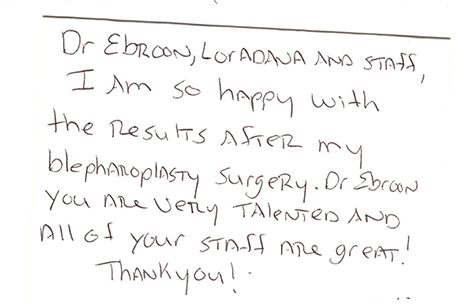 Dr Ebroon, Loradana and staff,
I am so happy with
the results after my
blepharoplasty surgery. Dr Ebroon
you are very talented and
all of your staff are great!
Thankyou!